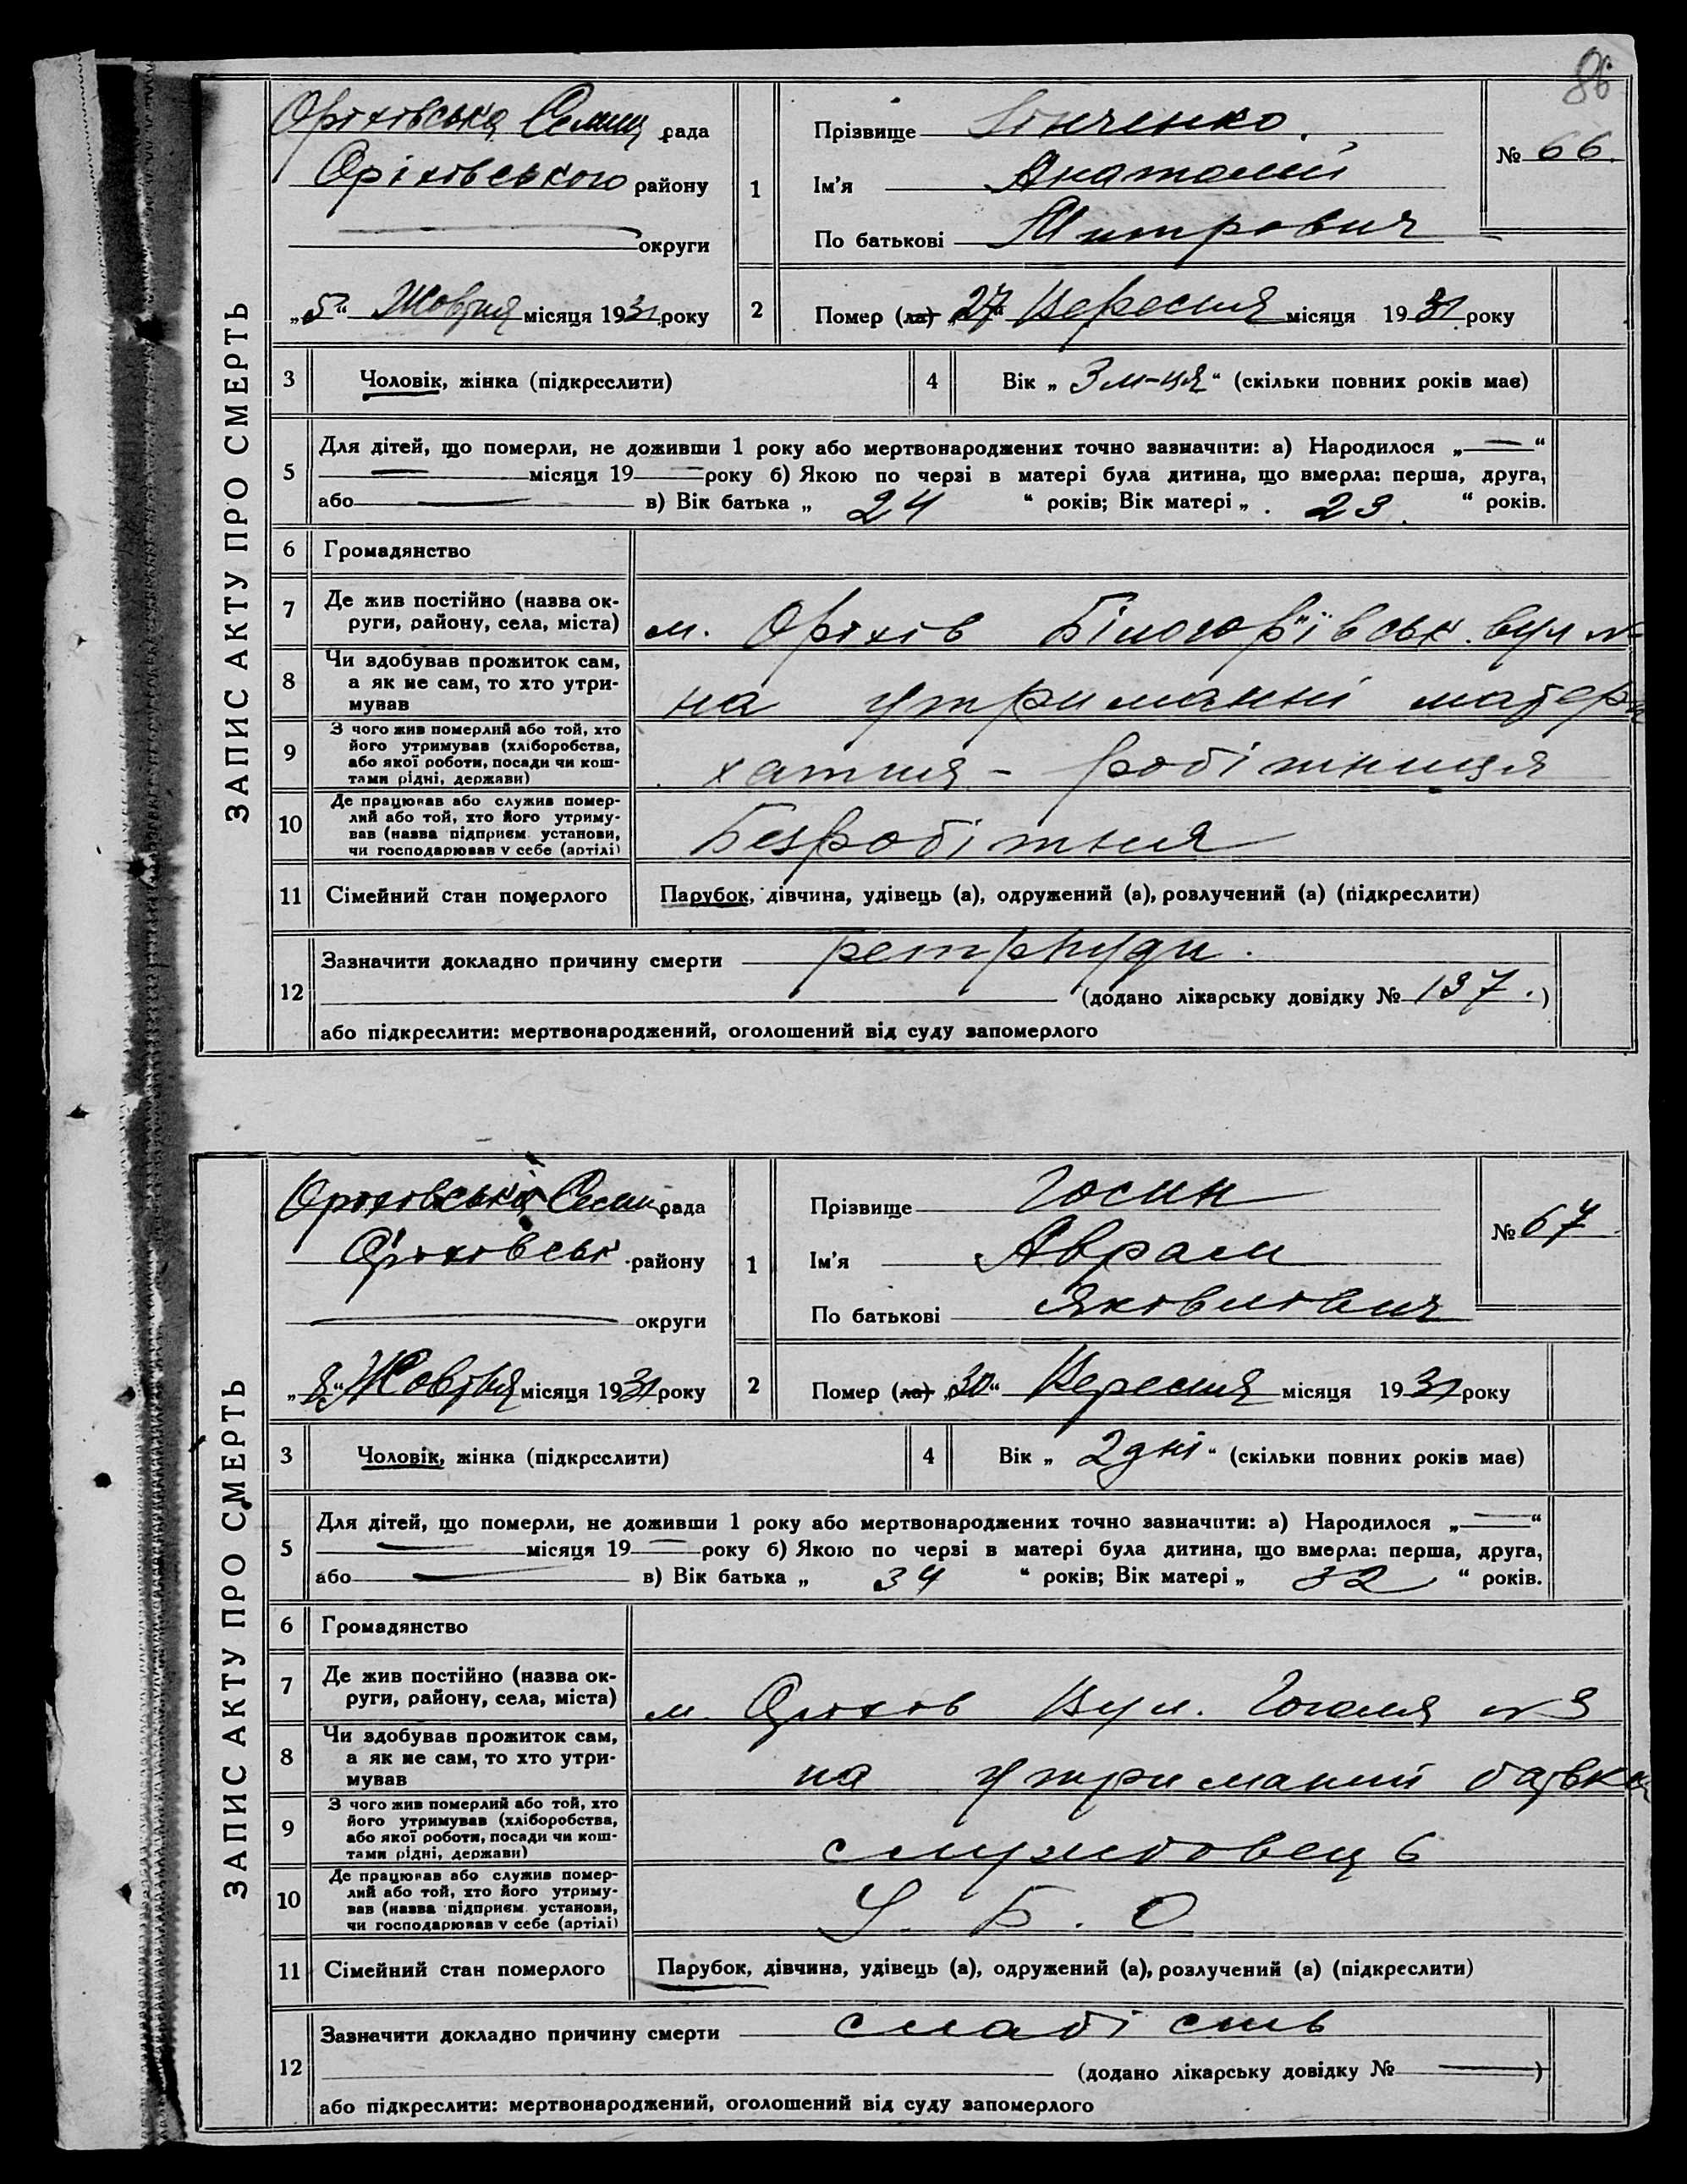 86
ЗАПИС АКТУ ПРО СМЕРТЬ
Оріхівська Селищ рада
Оріхівського району
округи
„5“ Жовтня місяця 1931 року
1
Прізвище Зінченко
Ім'я Анатолій
По батькові Митрович
№ 66.
2
Помер (ла) „27“ Вересня місяця 1931 року
3 Чоловік, жінка (підкреслити)
4 Вік „3 м-ця“ (скільки повних років має)
5 Для дітей, що померли, не доживши 1 року або мертвонароджених точно зазначити: а) Народилося „—“
— місяця 19— року б) Якою по черзі в матері була дитина, що вмерла: перша, друга,
або — в) Вік батька „24“ років; Вік матері „23“ років.
6 Громадянство
7 Де жив постійно (назва ок-
руги, району, села, міста)
м. Оріхів Білогор'ївськ. вул №
8 Чи здобував прожиток сам,
а як не сам, то хто утри-
мував
на утриманні матери
9 З чого жив померлий або той, хто
його утримував (хліборобства,
або якої роботи, посади чи кош-
тами рідні, держави)
хатня - робітниця
10 Де працював або служив помер-
лий або той, хто його утриму-
вав (назва підприєм. установи,
чи господарював у себе (артілі)
Безробітня
11 Сімейний стан померлого
Парубок, дівчина, удівець (а), одружений (а), розлучений (а) (підкреслити)
12 Зазначити докладно причину смерти
(додано лікарську довідку № 137.)
або підкреслити: мертвонароджений, оголошений від суду запомерлого
ЗАПИС АКТУ ПРО СМЕРТЬ
Оріхівська Селищ рада
Оріхівськ району
округи
„8“ Жовтня місяця 1931 року
1
Прізвище Госин
Ім'я Аврам
По батькові Яковлович
№ 67
2
Помер (ла) „30“ Вересня місяця 1931 року
3 Чоловік, жінка (підкреслити)
4 Вік „2 дні“ (скільки повних років має)
5 Для дітей, що померли, не доживши 1 року або мертвонароджених точно зазначити: а) Народилося „—“
— місяця 19— року б) Якою по черзі в матері була дитина, що вмерла: перша, друга,
або — в) Вік батька „34“ років; Вік матері „32“ років.
6 Громадянство
7 Де жив постійно (назва ок-
руги, району, села, міста)
м. Оріхов Вул. Гоголя № 3
8 Чи здобував прожиток сам,
а як не сам, то хто утри-
мував
на утриманий батька
9 З чого жив померлий або той, хто
його утримував (хліборобства,
або якої роботи, посади чи кош-
тами рідні, держави)
службовець
10 Де працював або служив помер-
лий або той, хто його утриму-
вав (назва підприєм. установи,
чи господарював у себе (артілі)
У. Б. О
11 Сімейний стан померлого
Парубок, дівчина, удівець (а), одружений (а), розлучений (а) (підкреслити)
12 Зазначити докладно причину смерти слабість
(додано лікарську довідку № —)
або підкреслити: мертвонароджений, оголошений від суду запомерлого